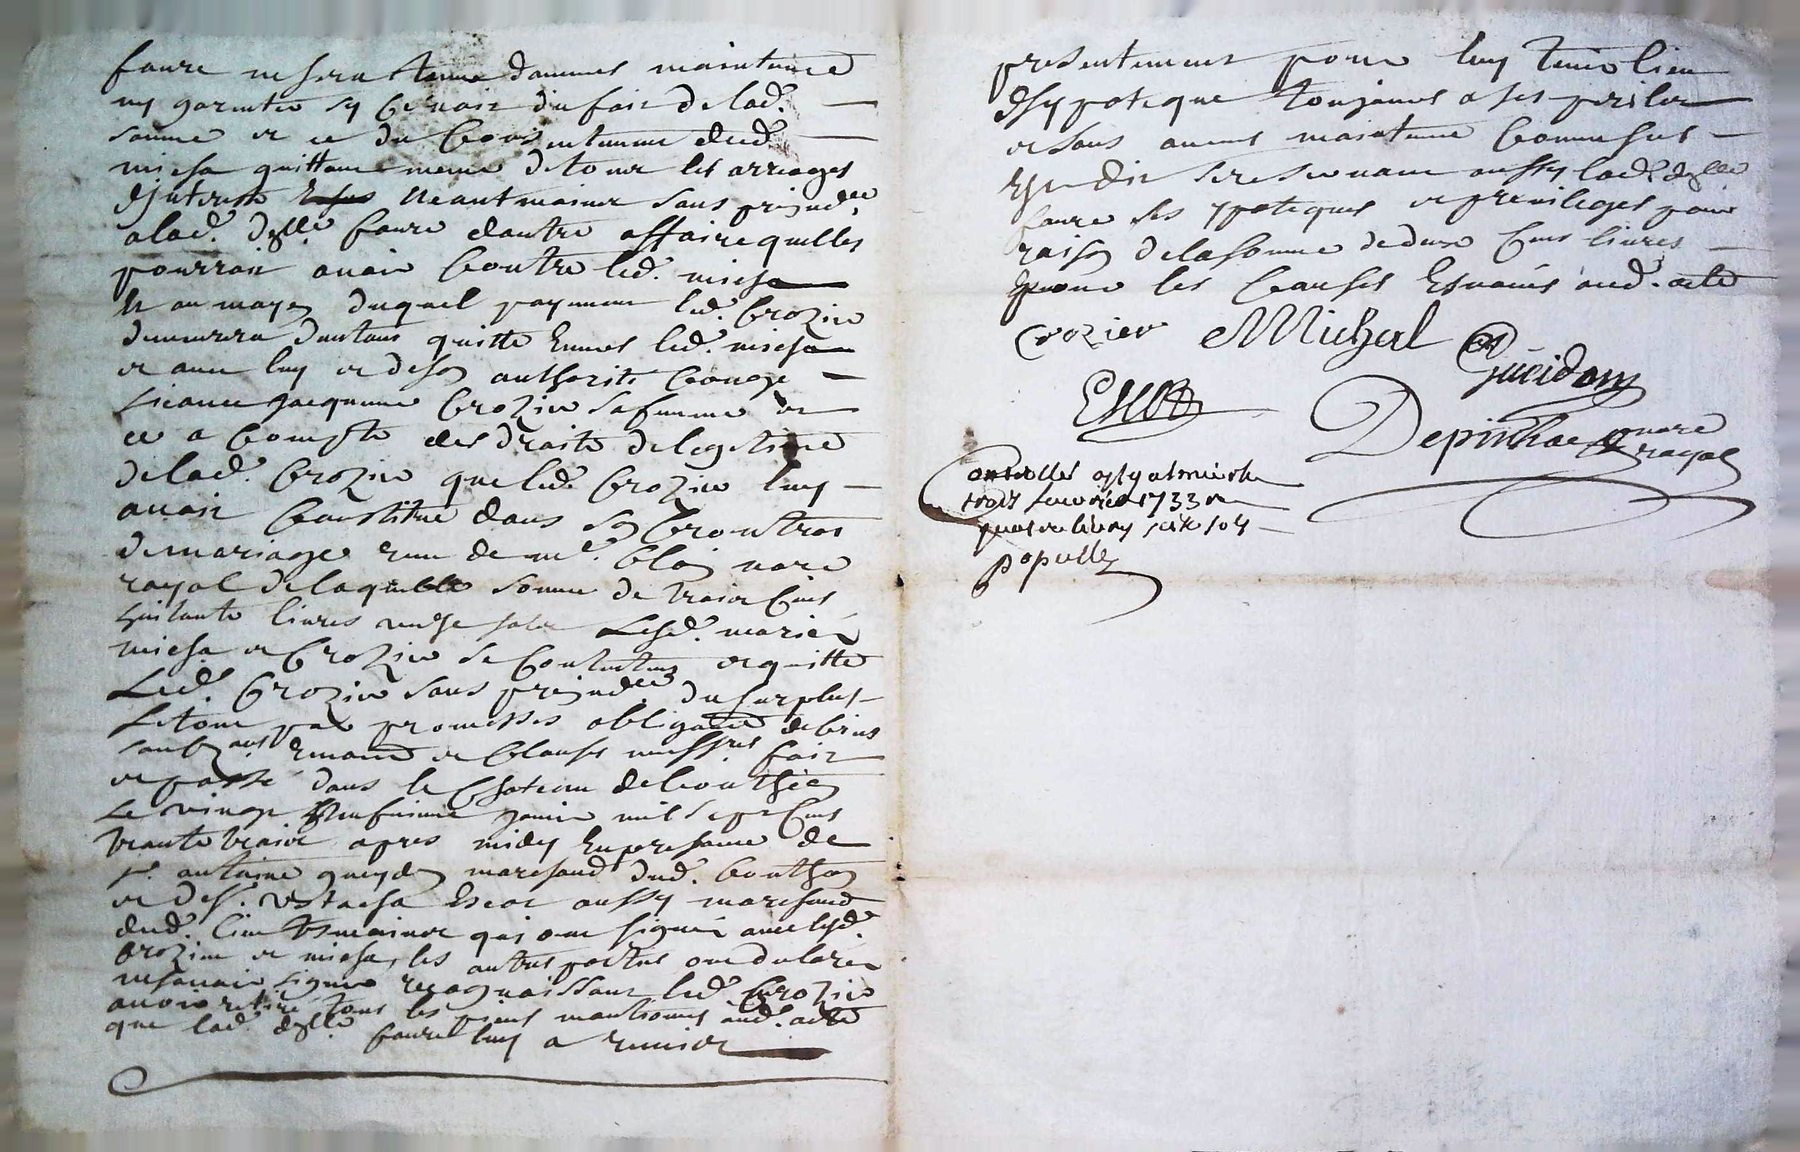 faure ne sera tenue daumet maintenue
ny garentie sy ce nait du fait de lad.
somme et ce du consentement dud.
micha quittance meme de tous les arreages
dinterest neantmoins sans prejudce
a lad. dglle faure dautre affaire quelles
pourrait avoir contre led. micha
Et au moyen duquel payement led. Crozier
demeurera dautant quitte Envers led. micha
et avec luy et de son authorité conoge
licance jacqueme Crozier sa femme et
ce a compte des droits de legitime
de lad. Crozier que led. Crozier luy
avait constitué dans son Contrat
de mariage reçu de me. blain nore
royal de laquelle somme de trois cens
huitante livres sols Lesd. mariés
micha et Crozier se contentent et quitte
Led. Crozier sans prejudce du surplus
Le tout par promesses obligaon de biens
Ernaon et clauses fait
et passé dans le chateau de bouthéon
Le vingt janvier mil sept cens
trante trois apres midy En presance de
sr. antoine gueydon marchand dud. bouthon
et de sr. Estacha Escot aussy marchand
dud. lieu tsmoins qui ont signé avec lesd.
Crozier et micha, les autres parties ont declaré
ne savoir signer recognoissant led. Crozier
avoir retiré tous les mantionnés aud. acte
que lad. dglle faure luy a remior
presentement pour luy tenir lieu
dhypoteque toujours a ses perils
et sans aucune maintenue comme sus
Est dit se reservant aussy lad. dglle
faure ses ypoteques et previleges pour
raison de la somme de deux cens livres
Et pour les causes Esnoncés aud. acte
Crozier Michal
Gueidon
Escot
Depinhac nore royal
trois fevrier 1733 R
quatre livres six sols
populle